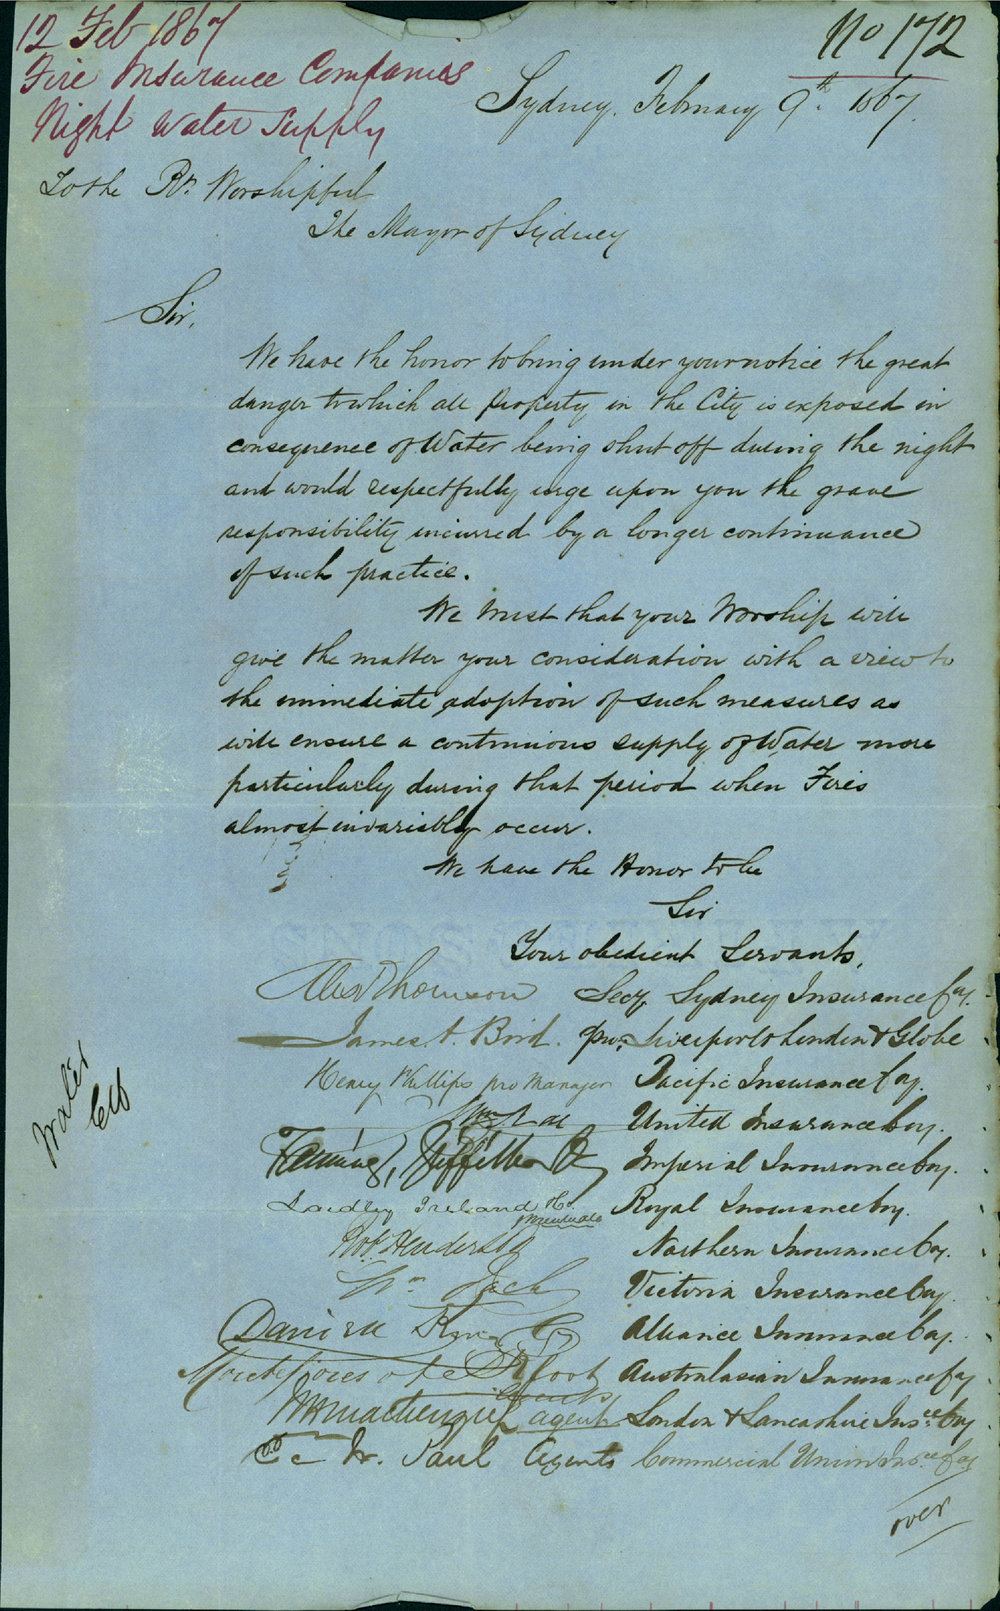 12 Feb 1867
No 172
Fire Insurance Companies
Night Water Supply
Sydney, February 9th 1867.
To the Rt. Worshipful
The Mayor of Sydney
Sir,
We have the honor to bring under your notice the great
danger to which all Property in the City is exposed in
consequence of Water being shut off during the night
and would respectfully urge upon you the grave
responsibility incurred by a longer continuance
of such practice.
We trust that your Worship will
give the matter your consideration with a view to
the immediate adoption of such measures as
will ensure a continuous supply of Water more
particularly during that period when Fires
almost invariably occur.
We have the Honor to be
Sir
Your obedient Servants,
Alexr Thomson Secy. Sydney Insurance Coy.
James A. Bird. pro. Liverpool & London & Globe
Henry Phillips pro Manager Pacific Insurance Coy.
United Insurance Coy.
Imperial Insurance Coy.
Laidley Ireland & Co. Royal Insurance Coy.
Robt Henderson Northern Insurance Coy.
Wm Jack Victoria Insurance Coy.
Alliance Insurance Coy.
Montefiore Agents Australasian Insurance Coy
agents London & Lancashire Insce Coy
Paul Agents Commercial Union Insce Coy
over
Water